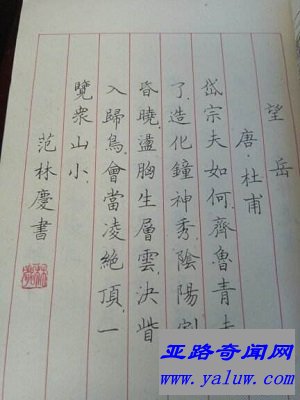 望岳
唐·杜甫
岱宗夫如何.齊魯青未
了.造化鐘神秀.陰陽割
昏曉.盪胸生層雲.決眥
入歸鳥.會當凌絕頂.一
覽衆山小
范林慶書
亚路奇闻网
www.yaluw.com